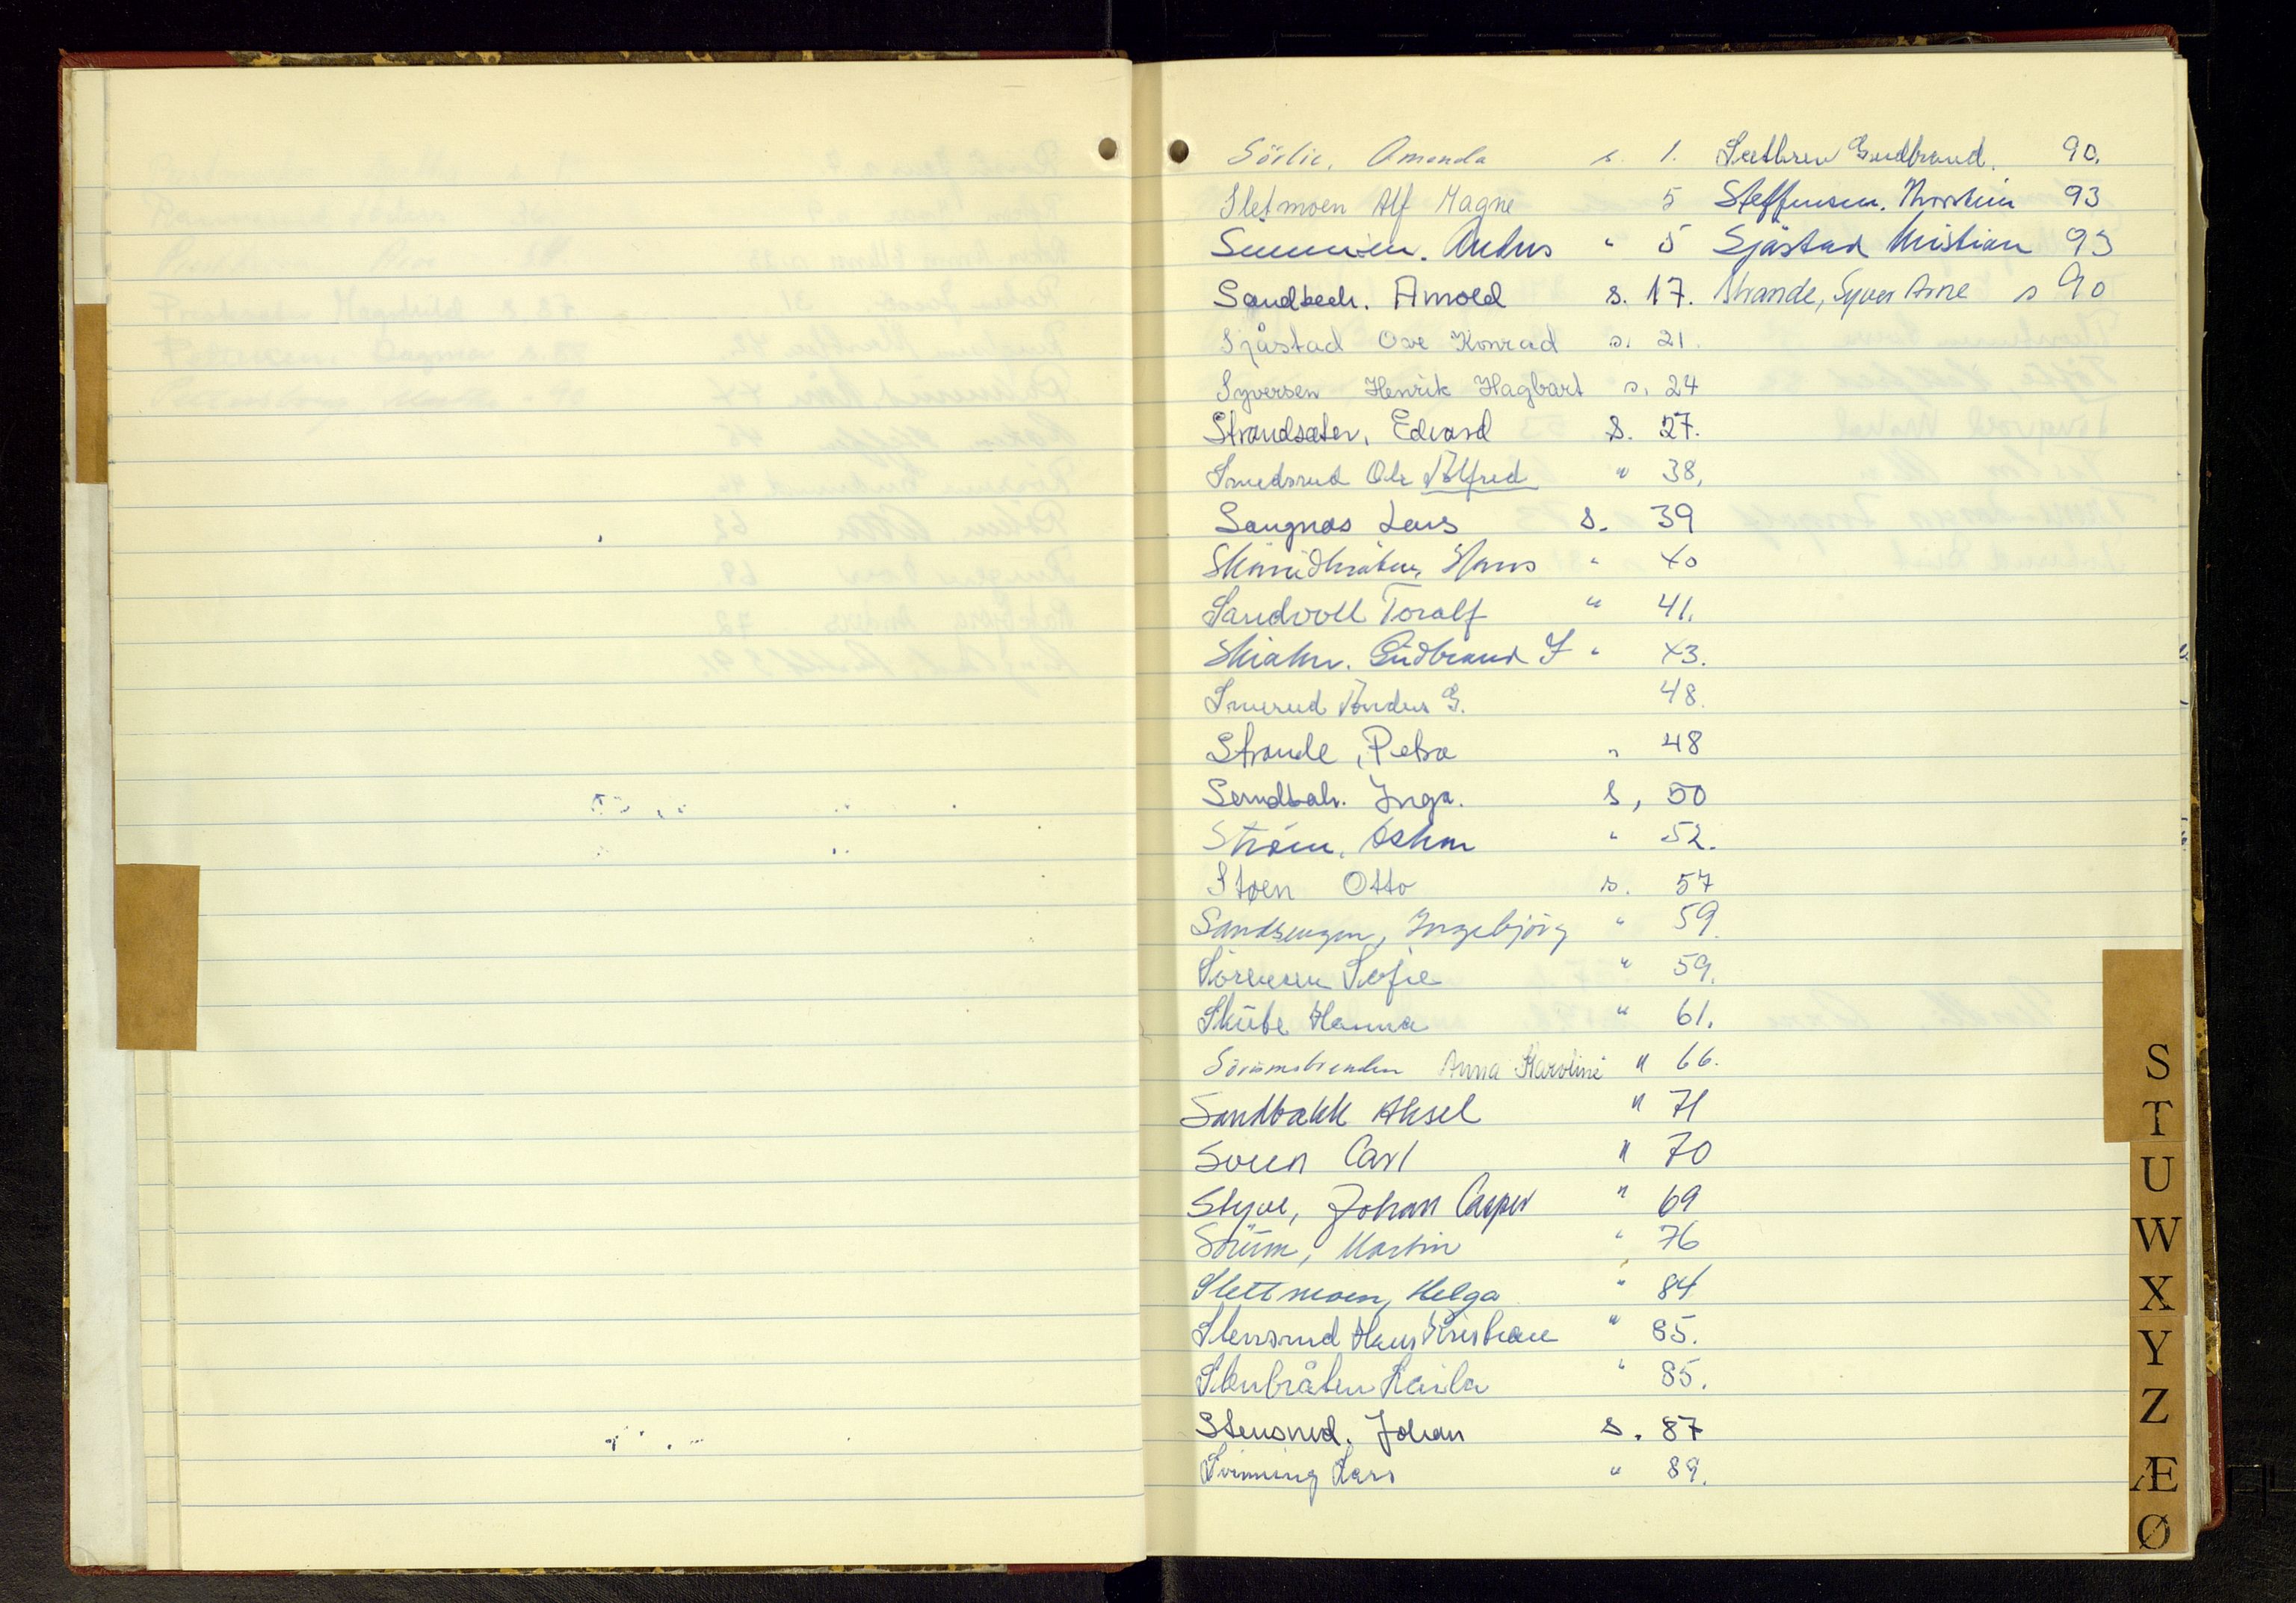 Sörlie, Amanda s. 1.
Sletmoen Alf Magne 5
Simensen. Anders " 5
Sandbech. Arnold s. 17.
Sjåstad Ove Konrad s. 21.
Syversen Henrik Hagbart s. 24
Strandsæter, Edvard s. 27.
Smedsrud Ole Alfred " 38,
Saugnæs Lars s. 39
Hans " 40
Sandvoll Toralf " 41.
Gudbrand " 43.
Smerud Anders G. 48.
Strande, Petra " 48
Sandbak. Inga. s, 50
Ström, Oskar " 52.
Støen Otto s. 57
Sandsengen, Ingebjörg " 59.
Sörensen Sofie " 59.
Skübe Hanna " 61.
Anna Karoline " 66.
Sandbakk Aksel " 71
Soen Carl " 70
Styve, Johan Casper " 69
Sörum, Martin " 76
Slettmoen, Helga " 84
Stensrud Hans Kristian " 85.
Stenbråten Karla " 85.
Stensrud. Johan s. 87
Svinning Lars " 89.
Sæthren Gudbrand. 90.
Steffensen. Thorstein 93
Sjåstad Kristian 93
Strande, Syver Arne s 90
S
T
U
W
X
Y
Z
Æ
Ø